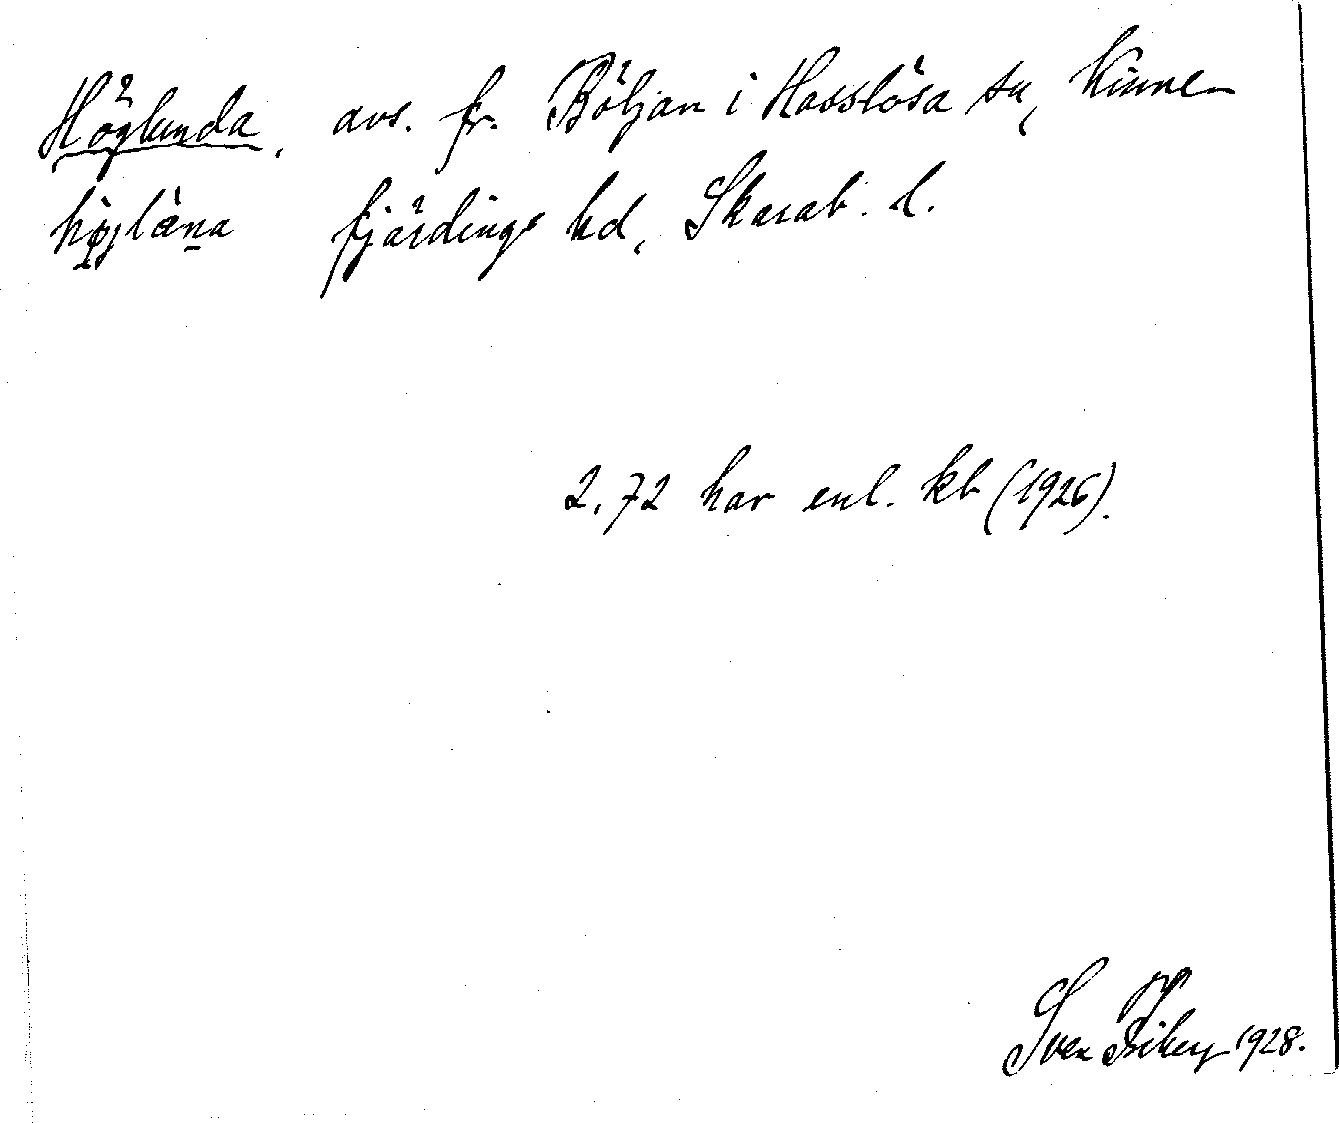 Höglunda, avs. fr. Böljan i Hasslösa sn, Kinne-
fjärdings hd, Skarab. l.
2,72 har enl. kb (1926).
Sven 1928.